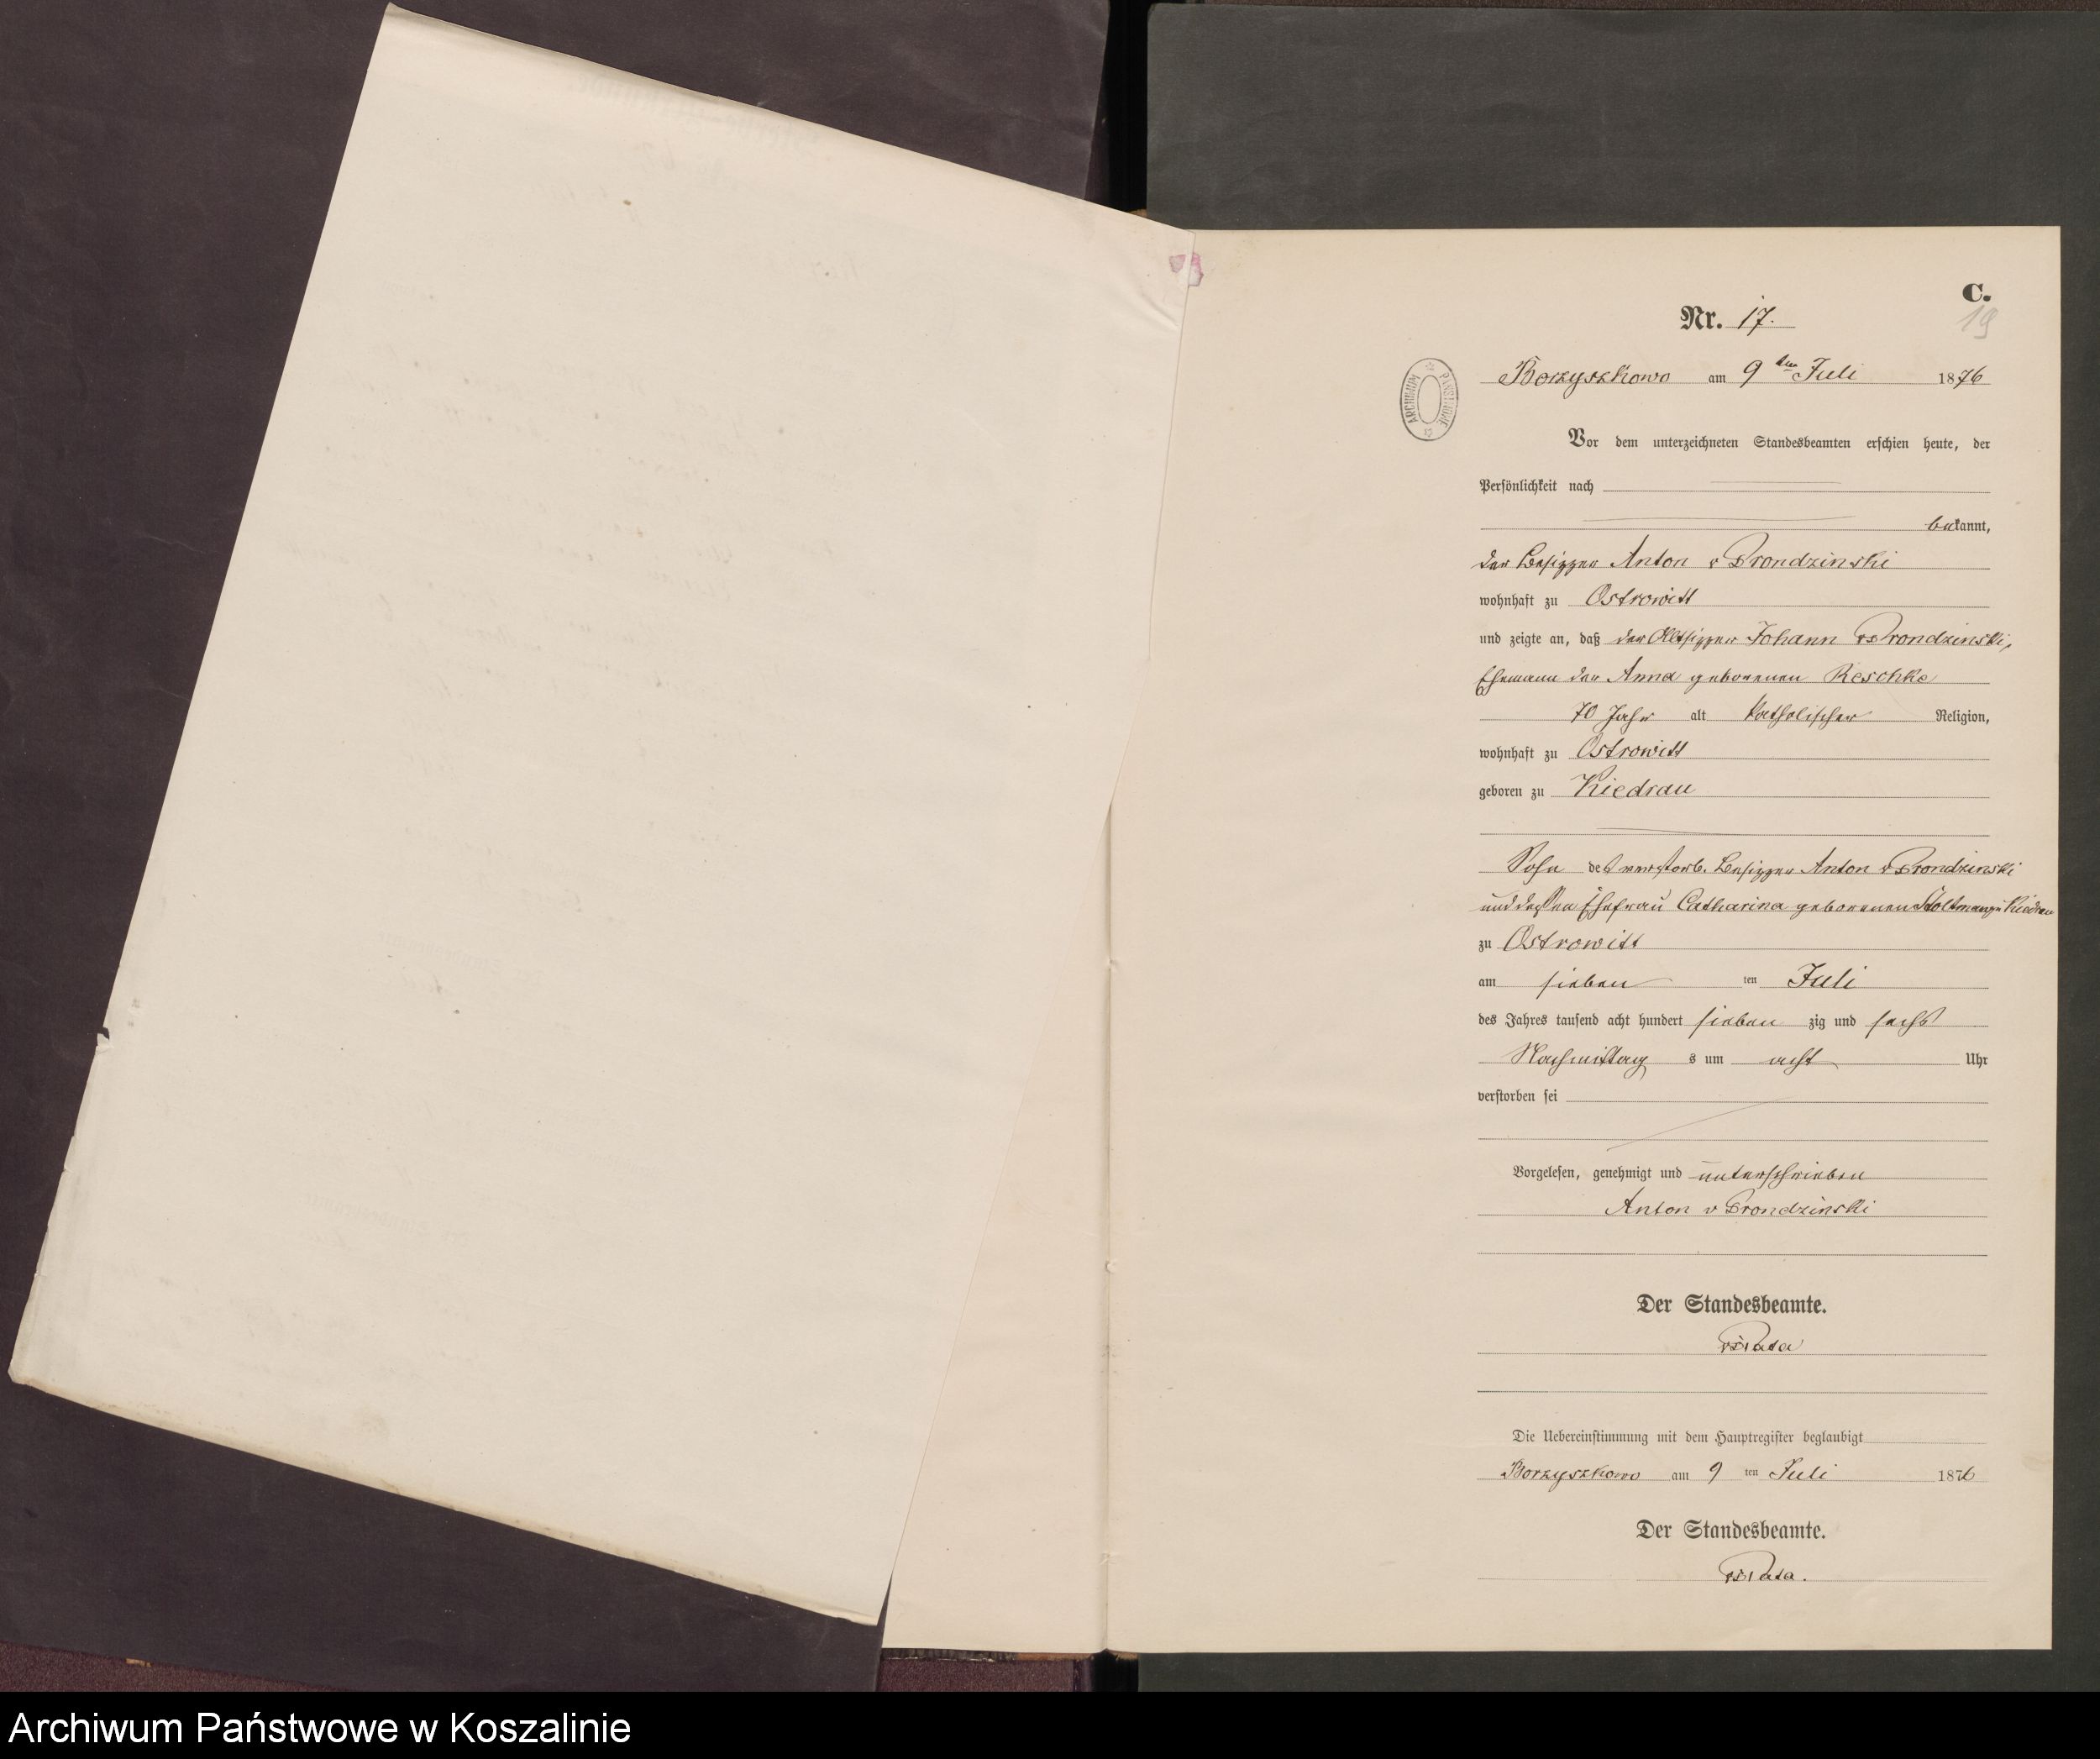 C.
19
Nr. 17.
Borzyszkowo am 9ten Juli 1876
ARCHIWUM PAŃSTWOWE
Vor dem unterzeichneten Standesbeamten erschien heute, der
Persönlichkeit nach
bekannt,
der Besitzer Anton v Prondzinski
wohnhaft zu Ostrowitt
und zeigte an, daß der Altsitzer Johann v Prondzinski,
Ehemann der Anna geborenen Reschke
70 Jahr alt katholischer Religion,
wohnhaft zu Ostrowitt
geboren zu Kiedrau
Sohn des verstorb. Besitzer Anton v Prondzinski
und dessen Ehefrau Catharina geborenen Kiedrau
zu Ostrowitt
am sieben ten Juli
des Jahres tausend acht hundert sieben zig und sechs
Nachmittag s um acht Uhr
verstorben sei
Vorgelesen, genehmigt und unterschrieben
Anton v Prondzinski
Der Standesbeamte.
Die Uebereinstimmung mit dem Hauptregister beglaubigt
Borzyszkowo am 9 ten Juli 1876
Der Standesbeamte.
Archiwum Państwowe w Koszalinie